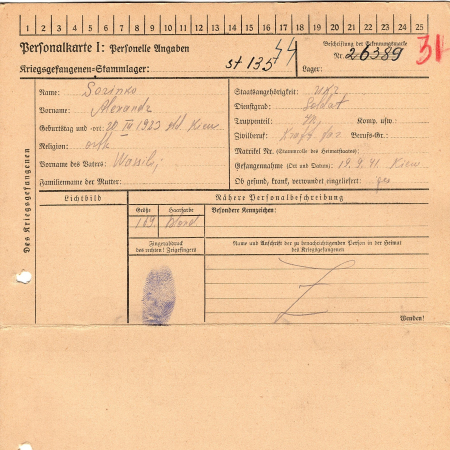 1 2 3 4 5 6 7 8 9 10 11 12 13 14 15 16 17 18 19 20 21 22 23 24 25
Personalkarte I: Personelle Angaben
Beschriftung der Erkennungsmarke
Nr. 26389
31
Kriegsgefangenen=Stammlager: St 135
Lager:
Des Kriegsgefangenen
Name:
Vorname:
Geburtstag und -ort: 20 IV 1923 Kiew
Religion: orth
Vorname des Vaters: Wassilij
Familienname der Mutter:
Staatsangehörigkeit: Ukr.
Dienstgrad: Soldat
Truppenteil: Komp. usw.:
Zivilberuf: Berufs-Gr.:
Matrikel Nr. (Stammrolle des Heimatstaates):
Gefangennahme (Ort und Datum): 19.9.41 Kiew
Ob gesund, krank, verwundet eingeliefert: ges
Lichtbild
Nähere Personalbeschreibung
Größe Haarfarbe Besondere Kennzeichen:
169 blond
Fingerabdruck
des rechten! Zeigefingers
Name und Anschrift der zu benachrichtigenden Person in der Heimat
des Kriegsgefangenen
Wenden!